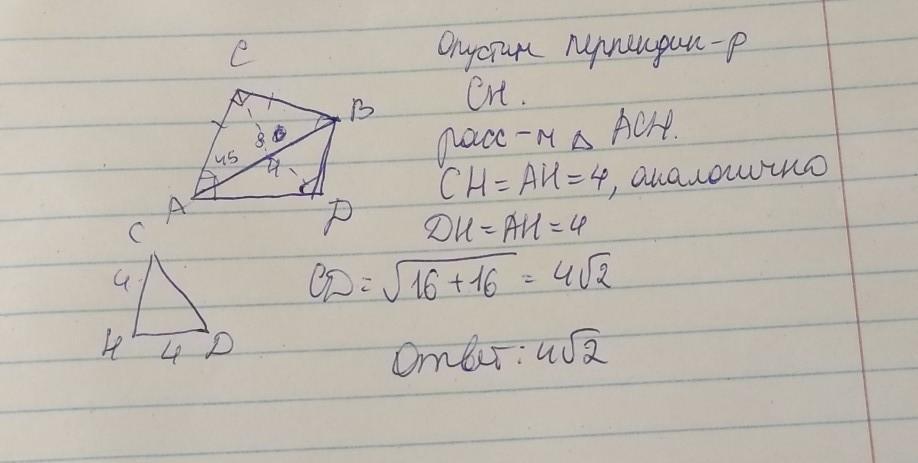 C
B
8
45
H
A
D
C
4
H
4
D
Опустим перпендик-р
CH.
расс-м △ ACH.
CH=AH=4, аналогично
DH=AH=4
CD=√16+16 = 4√2
Ответ: 4√2